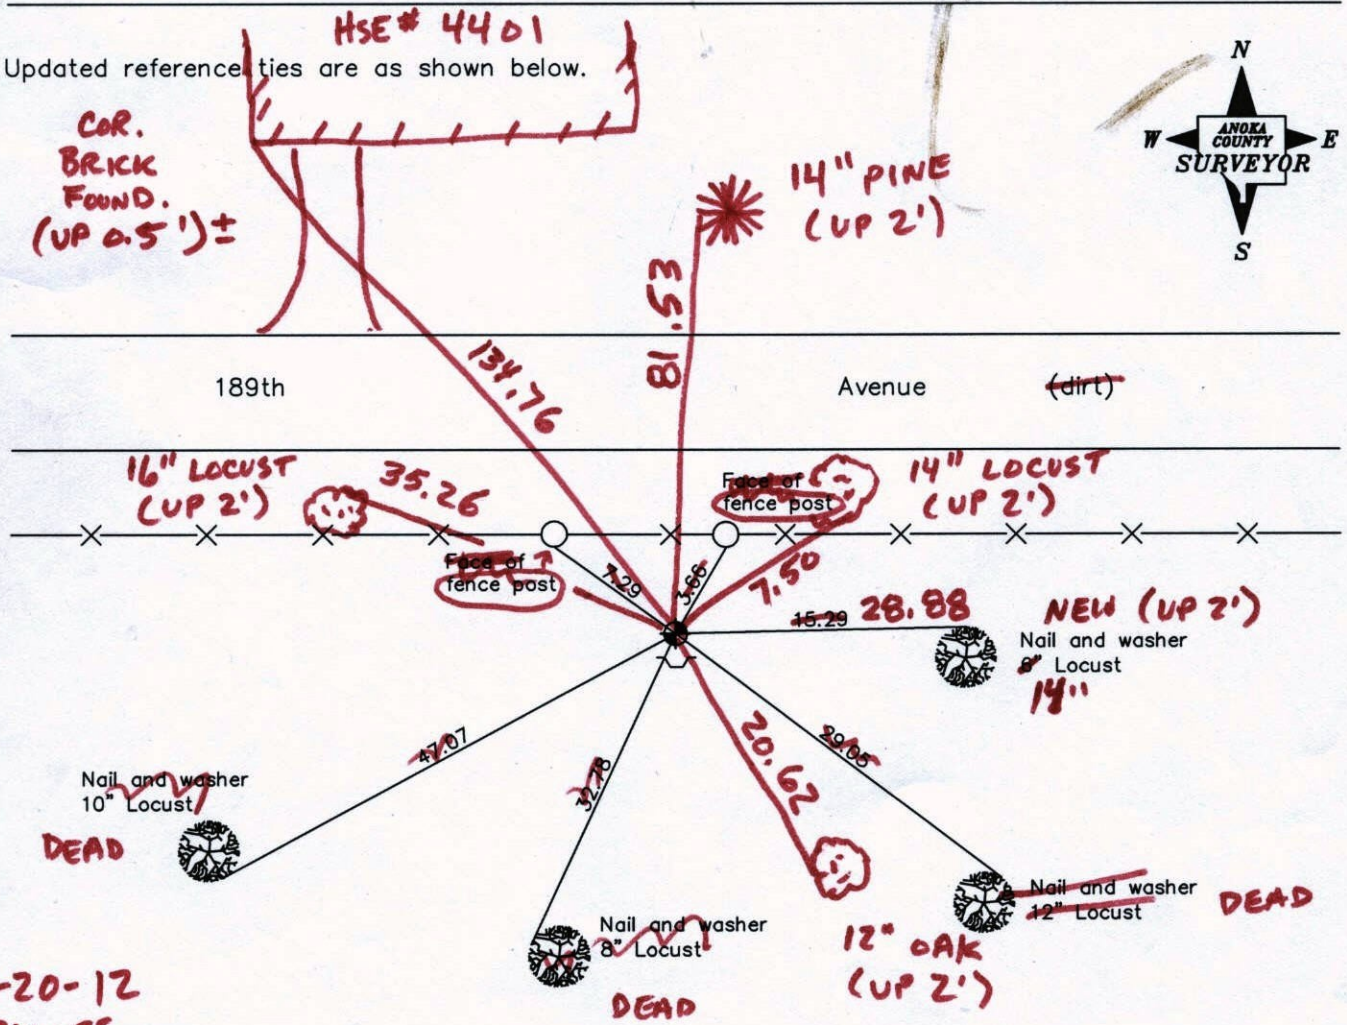 HSE# 4401
Updated reference ties are as shown below.
N
W
ANOKA
COUNTY
SURVEYOR
E
S
COR.
BRICK
FOUND.
(UP 0.5')±
14" PINE
(UP 2')
81.53
134.76
189th
Avenue
(dirt)
16" LOCUST
(UP 2')
35.26
Face of
fence post
14" LOCUST
(UP 2')
Face of
fence post
7.29
3.66
7.50
15.29
28.88
NEW (UP 2')
Nail and washer
8" Locust
14"
47.07
32.78
20.62
29.05
Nail and washer
10" Locust
DEAD
Nail and washer
8" Locust
DEAD
12" OAK
(UP 2')
Nail and washer
12" Locust
DEAD
-20-12